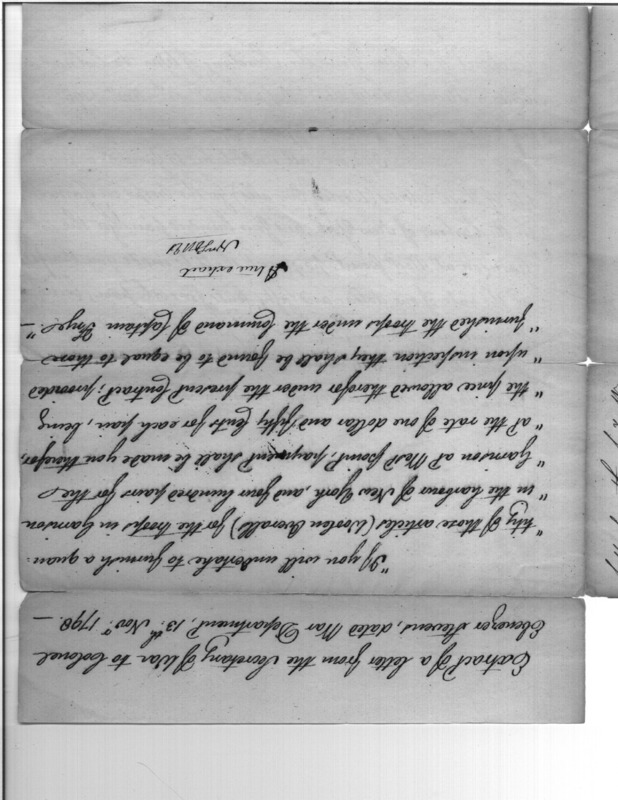 Extract of a letter from the Secretary of War to Colonel
Ebenezer Stevens, dated War Department, 13th Novr 1798.—
"If you will undertake to furnish a quan-
"tity of those articles (Woolen Overalls) for the troops in Garrison
"in the harbour of New York, and four hundred pairs for the
"Garrison at West point, payment shall be made you therefor,
"at the rate of one dollar and fifty Cents for each pair, being
"the price allowed therefor under the present Contract; provided
"upon inspection they shall be found to be equal to those
"furnished the troops under the Command of Captain Frye."—
A true extract